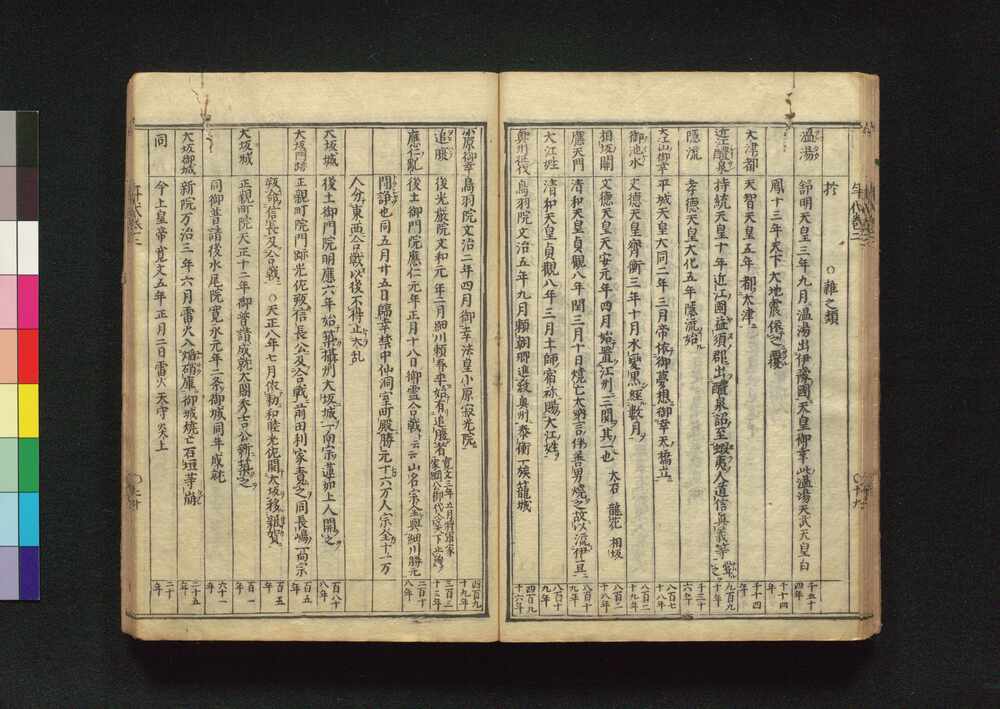 拾　○雜之類
溫湯　舒明天皇三年九月溫湯出伊豫國天皇御幸此溫湯天武天皇白　千五十四年
鳳十三年天下大地震倐之覆　千十四年
大津都　天智天皇五年都大津　千十四年
近江醴泉　持統天皇十年近江國益須郡出醴泉詔至蝦夷人道信真義等　九百九十年
隱流　孝德天皇大化五年隱流始　千三十六年
大江山御幸　平城天皇大同二年三月帝依御夢想御幸天橋立　八百七十八年
御池水　文德天皇齊衡三年十月水変黒経數月　八百二十九年
相坂關　文德天皇天安元年四月始置江州三關其一也　大石 龍花 相坂　八百二十八年
應天門　清和天皇貞觀八年閏三月十日燒亡大納言伴善男燒之故以流伊豆　八百十九年
大江姓　清和天皇貞觀八年三月土師宿祢賜大江姓　八百十九年
奧州征伐　鳥羽院文治五年九月頼朝郷進發奥州泰衡一族籠城　四百九十六年
小原御幸　鳥羽院文治二年四月御幸法皇小原寂光院　四百九十九年
追腹　後光厳院文和元年二月細川頼春卒始有追腹者　三百三十三年
應仁亂　後土御門院應仁元年正月十八日御霊合戰云云山名宗全與細川勝元　二百十八年
鬪諍也同五月廿五日臨幸禁中仙洞室町殿勝元十六万人宗全十一万
人分東西合戰以後不得止大乱
大坂城　後土御門院明應六年始築攝州大坂城一向宗蓮如上人開之　百八十八年
大坂門跡　正親町院門跡光佐致信長公及合戰前田利家責之同長嶋一向宗　百五年
敎命信長及合戰　○天正八年七月依勅和睦光佐開大坂移雜賀　百五年
大坂城　正親町院天正十二年御普請成就太閤秀吉公新築之　百一年
同御普請後水尾院寛永元年二条御城同年成就　六十一年
大坂御城　新院万治三年六月雷火入焔硝庫御城燒亡石垣等崩　二十五年
同　今上皇帝寛文五年正月二日雷火天守炎上　二十年